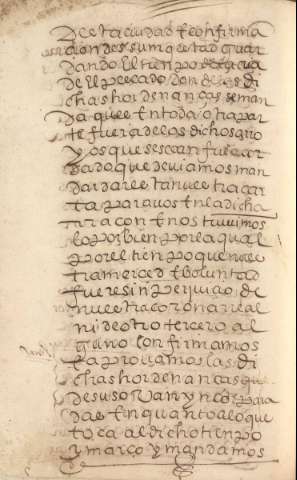 de esta ciudad E confirma
cion de su magestad guar
dando El tienpo
de El pescado don de las di
chas hordenanças se man
da que En toda otra par
te fuera de los dichos rrio
y os que se sean fue acor
dado que deviamos man
dar dar esta nuestra car
ta para vos En la dicha
rraçon E nos tuuimos
lo por bien por la qual
por el tienpo que nues
tra merced E boluntad
fuere sin perjuiçio de
nuestra corona rreal
ni de otro tercero al
guno confirmamos
E aprouamos las di
chas hordenanças que
de suso van yncorpora
das En quanto a lo que
toca al dicho tienpo
y marco y mandamos